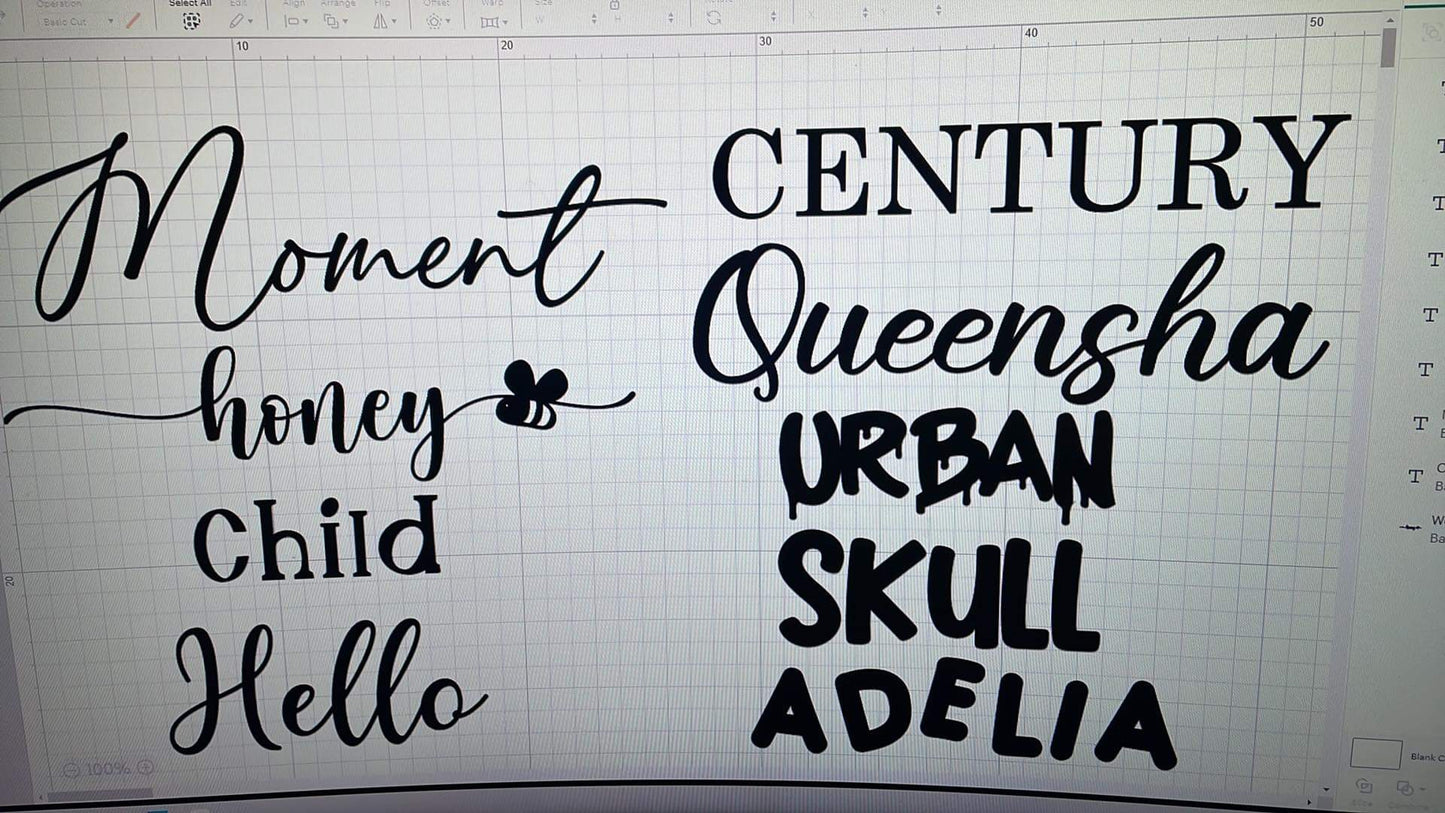 Operation
Select All
Edit
Align
Arrange
Flip
Offset
Warp
Size
Basic Cut
W
H
10
20
30
40
50
20
Moment
honey
Child
Hello
CENTURY
Queensha
URBAN
SKULL
ADELIA
100%
Blank C